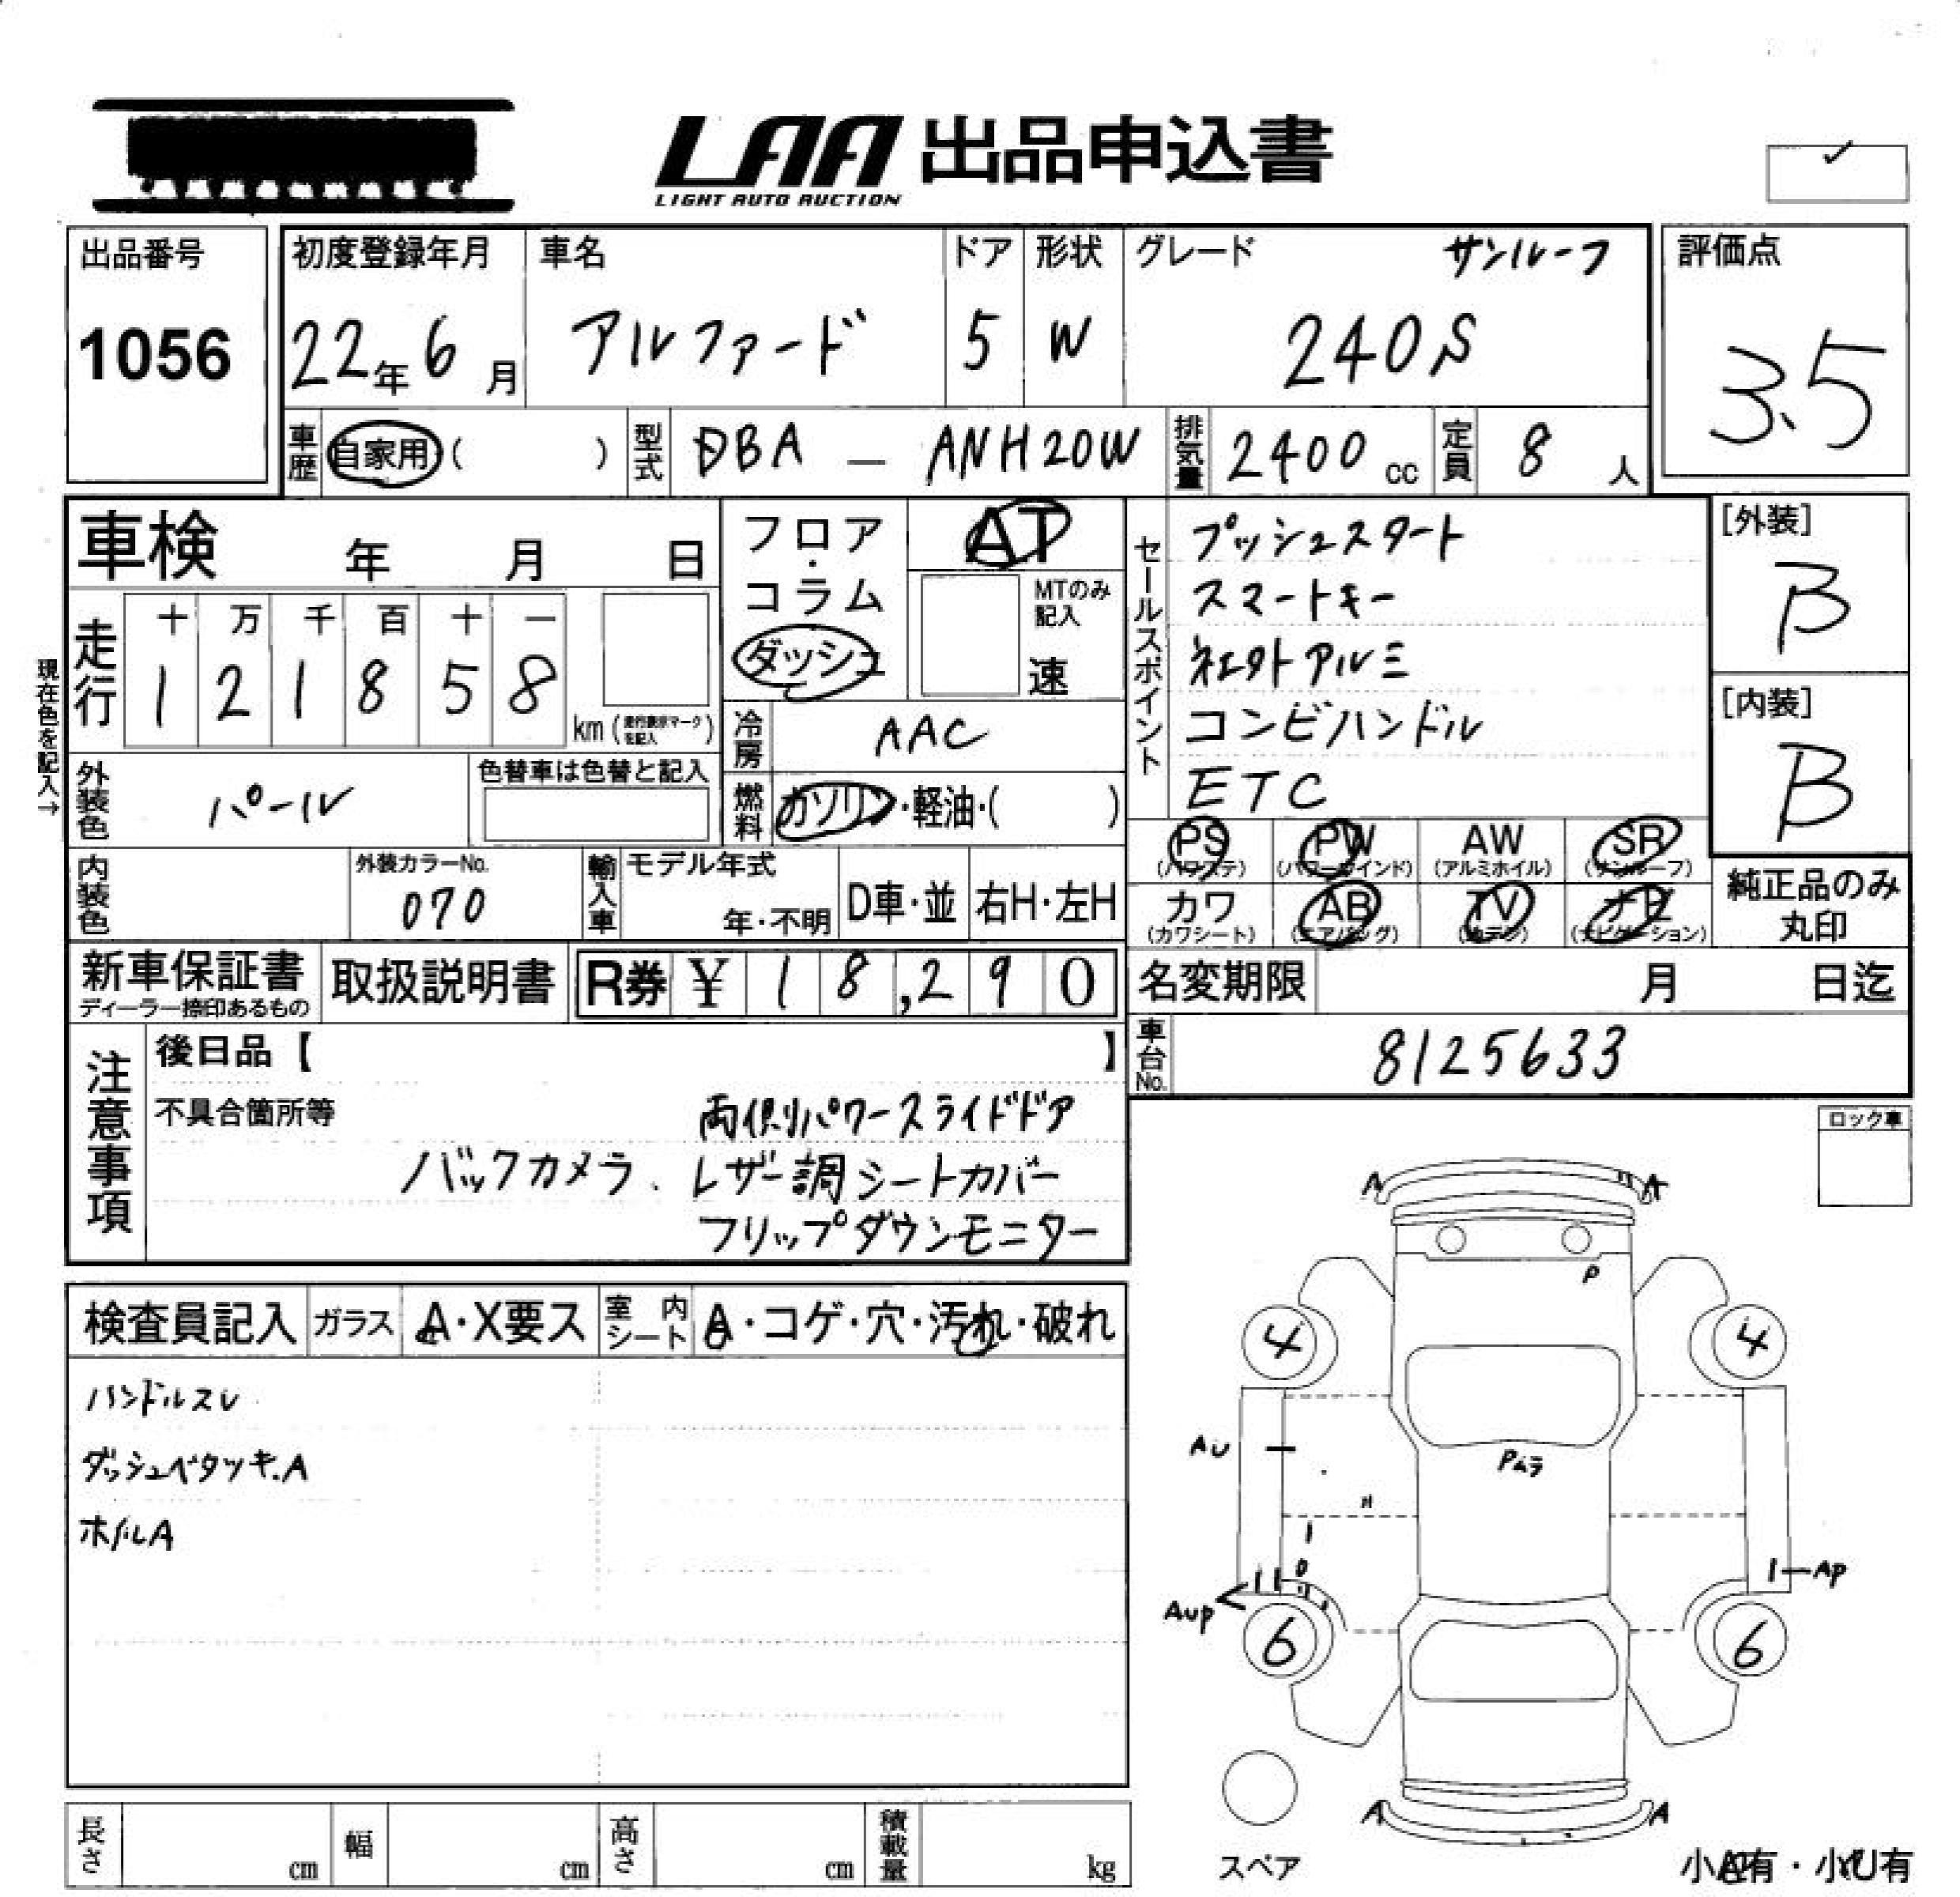 LAA 出品申込書
LIGHT AUTO AUCTION
出品番号
1056
初度登録年月
22年 6月
車名
アルファード
ドア
5
形状
W
グレード
サンルーフ
240S
評価点
3.5
車歴
自家用 ( )
型式
DBA - ANH20W
排気量
2400 cc
定員
8 人
車検 年 月 日
フロア・コラム
ダッシュ
AT
MTのみ記入
速
セールスポイント
プッシュスタート
スマートキー
社外アルミ
コンビハンドル
ETC
[外装]
B
[内装]
B
現在色を記入→
走行
十 万 千 百 十 一
1 2 1 8 5 8
km (走行表示マークを記入)
冷房
AAC
外装色
パール
色替車は色替と記入
燃料
ガソリン・軽油・( )
PS (パワステ)
PW (パワーウインド)
AW (アルミホイル)
SR (サンルーフ)
カワ (カワシート)
AB (エアバッグ)
TV
ナビ (ナビゲーション)
純正品のみ
丸印
内装色
外装カラーNo.
070
輸入車
モデル年式
年・不明
D車・並
右H・左H
新車保証書
ディーラー捺印あるもの
取扱説明書
R券 ¥ 18,290
名変期限 月 日迄
車台No.
8125633
注意事項
後日品【 】
不具合箇所等
両側パワースライドドア
バックカメラ. レザー調シートカバー
フリップダウンモニター
ロック車
検査員記入
ガラス
A・X要ス
室内シート
A・コゲ・穴・汚れ・破れ
ハンドルスレ
ダッシュベタツキ.A
ホイルA
A A
P
4 4
AU
Pムラ
Aup
Ap
6 6
A A
スペア
長さ cm
幅 cm
高さ cm
積載量 kg
小A有・小U有